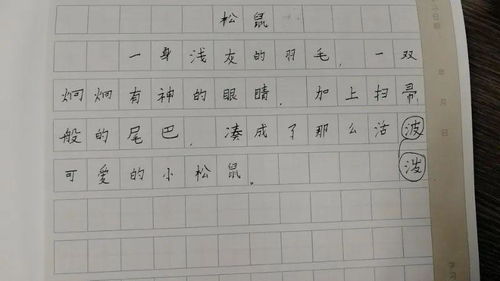 松鼠
一身浅灰的羽毛,一双
炯炯有神的眼睛.加上扫帚,
般的尾巴,凑成了那么活波
可爱的小松鼠。泼
年
月
日